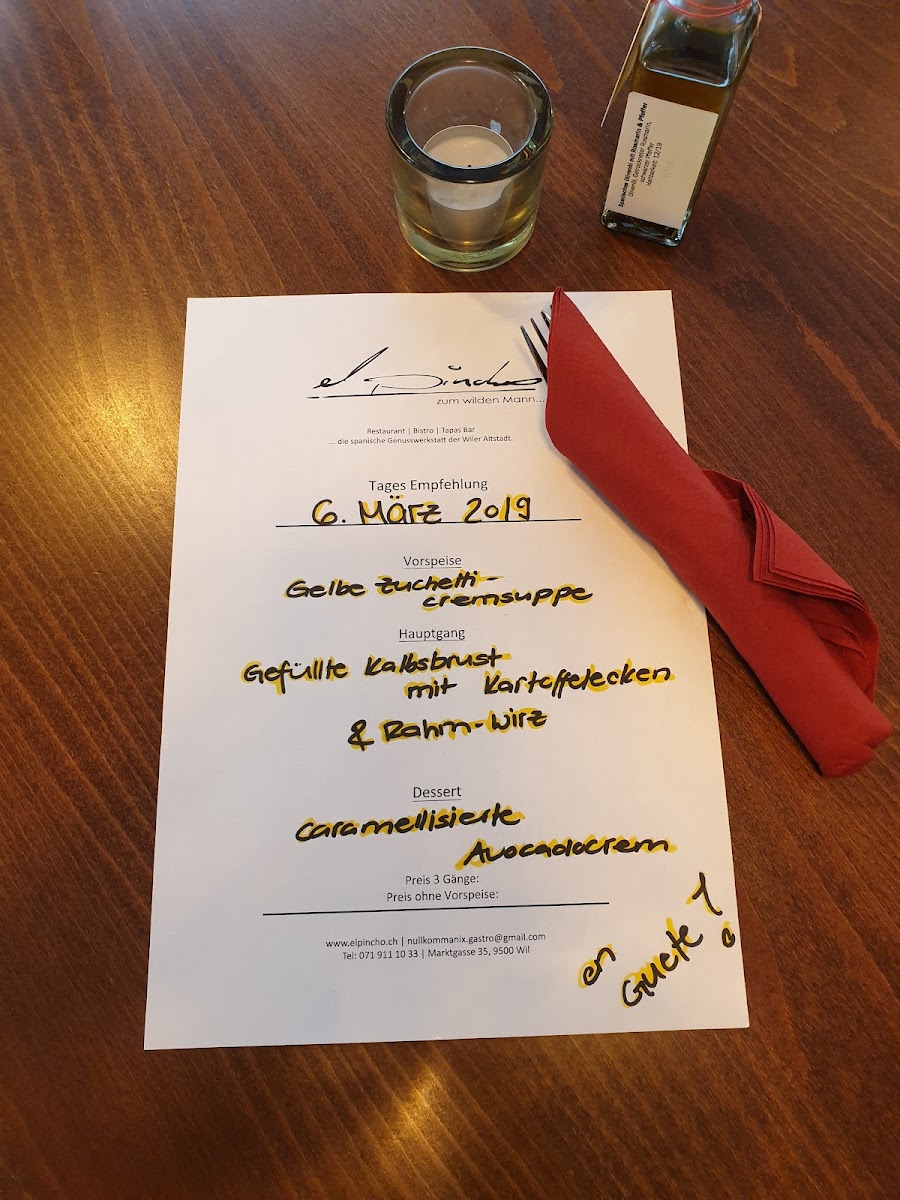 Spanisches Olivenöl mit Rosmarin & Pfeffer
Olivenöl, Getrockneter Rosmarin,
schwarzer Pfeffer
Haltbarkeit: 12/19
el pincho
zum wilden Mann...
Restaurant | Bistro | Tapas Bar
... die spanische Genusswerkstatt der Wiler Altstadt.
Tages Empfehlung
6. März 2019
Vorspeise
Gelbe Zuchetti-
cremsuppe
Hauptgang
Gefüllte Kalbsbrust
mit Kartoffelecken
& Rahm-Wirz
Dessert
Caramellisierte
Avocadocrem
Preis 3 Gänge:
Preis ohne Vorspeise:
www.elpincho.ch | nullkommanix.gastro@gmail.com
Tel: 071 911 10 33 | Marktgasse 35, 9500 Wil
en
Guete!